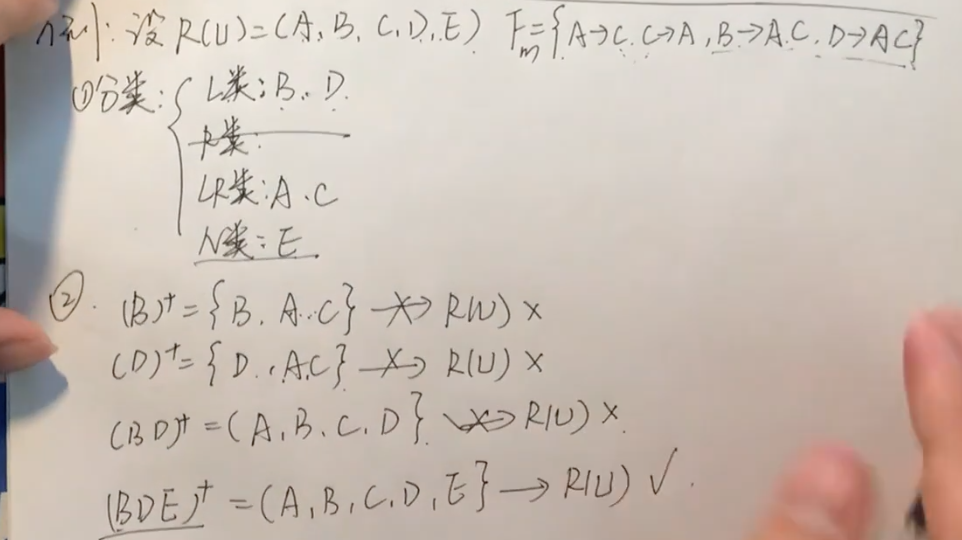 例1:设R(U)=(A,B,C,D,E) Fm={A→C.C→A,B→A.C.D→AC}
①分类:{L类:B.D
R类:
LR类:A.C
N类:E.
②.(B)⁺={B.A.C}↛R(U)×
(D)⁺={D.,A.C}↛R(U)×
(BD)⁺=(A,B.C,D}.↛R(U)×.
(BDE)⁺=(A,B,C,D,E}→R(U)√.